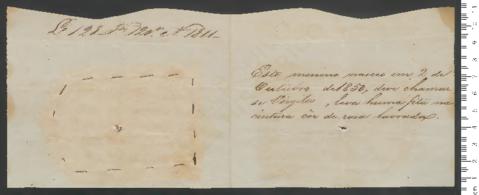 Lº 128 Nº 120 e Nº 1811
Este menino nasceu em 2 de
Outubro, de 1850, deve chamar
se Virgilio, leva huma fita na
cintura côr de rosa lavrada.